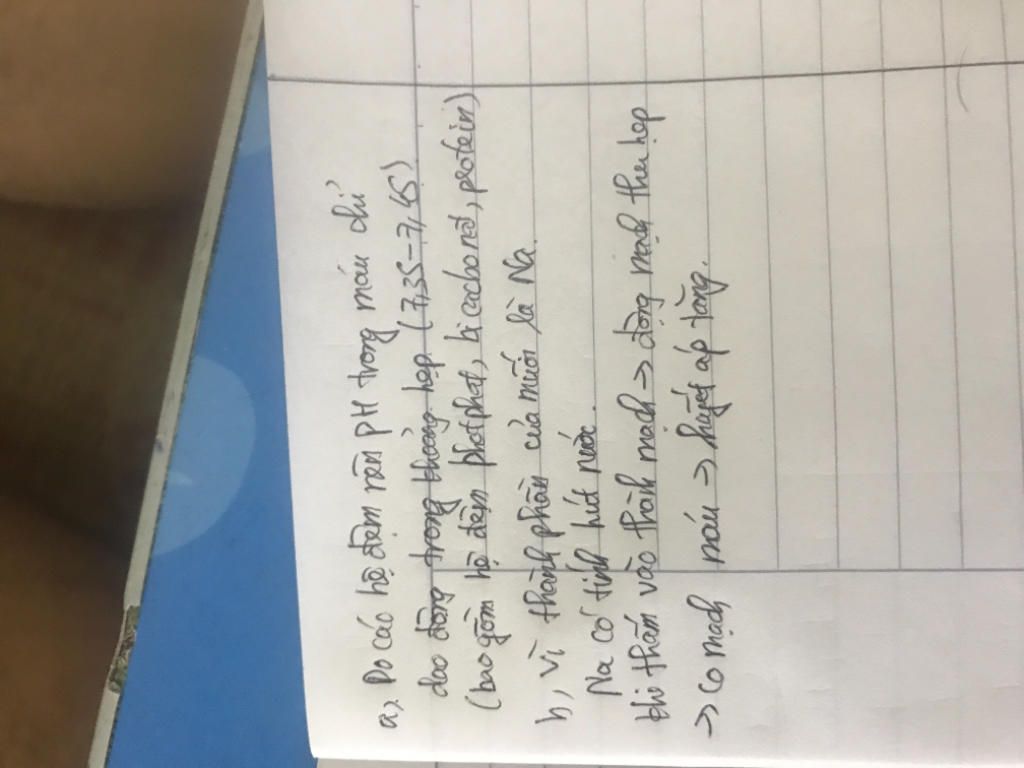 a), Do các hệ đệm nên PH trong máu chỉ
dao động trong khoảng hẹp. (7,35-7,45)
(bao gồm hệ đệm photphat, bicacbonat, protein)
b, Vì thành phần của muối là Na.
Na có tính hút nước.
khi thấm vào thành mạch → động mạch thu hẹp
→ co mạch máu → huyết áp tăng.